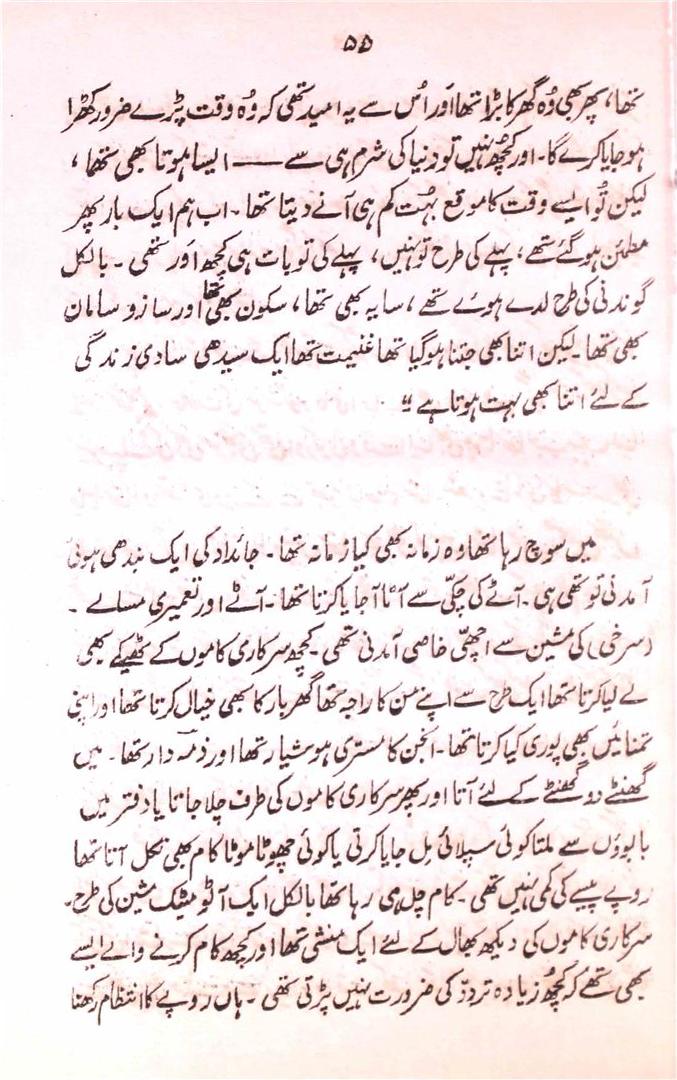 ۵۵
تھا، پھر بھی وُہ گھر کا بڑا تھا اور اُس سے یہ امید تھی کہ وُہ وقت پڑے ضرور کھڑا
ہو جایا کرے گا۔ اور کچھ نہیں تو دنیا کی شرم ہی سے —— ایسا ہوتا بھی تھا،
لیکن تُو ایسے وقت کا موقع بہُت کم ہی آنے دیتا تھا۔ اب ہم ایک بار پھر
مطمئن ہو گئے تھے، پہلے کی طرح تو نہیں، پہلے کی تو بات ہی کچھ اَور تھی۔ بالکل
گوندنی کی طرح لدے ہوئے تھے، سایہ بھی تھا، سکون بھی تھا اور ساز و سامان
بھی تھا۔ لیکن اتنا بھی جتنا ہو گیا تھا غنیمت تھا ایک سیدھی سادی زندگی
کے لئے اتنا بھی بہت ہوتا ہے"
میں سوچ رہا تھا وہ زمانہ بھی کیا زمانہ تھا۔ جائداد کی ایک بندھی ہوئی
آمدنی تو تھی ہی۔ آٹے کی چکّی سے آٹا آ جایا کرتا تھا۔ آٹے اور تعمیری مسالے ۔
(سرخی) کی مشین سے اچھّی خاصی آمدنی تھی۔ کچھ سرکاری کاموں کے ٹھیکے بھی
لے لیا کرتا تھا ایک طرح سے اپنے من کا راجہ تھا گھر بار کا بھی خیال کرتا تھا اور اپنی
تمنائیں بھی پوری کیا کرتا تھا۔ انجن کا مستری ہوشیار تھا اور ذمہ دار تھا۔ میں
گھنٹے دو گھنٹے کے لئے آتا اور پھر سرکاری کاموں کی طرف چلا جاتا یا دفتر میں
بابوؤں سے ملتا کوئی سپلائی مِل جایا کرتی یا کوئی چھوٹا موٹا کام بھی نکل آتا تھا
روپے پیسے کی کمی نہیں تھی۔ کام چل ہی رہا تھا بالکل ایک آٹومیٹک مشین کی طرح۔
سرکاری کاموں کی دیکھ بھال کے لئے ایک منشی تھا اور کچھ کام کرنے والے ایسے
بھی تھے کہ کچھ زیادہ تردّد کی ضرورت نہیں پڑتی تھی۔ ہاں روپے کا انتظام رکھنا